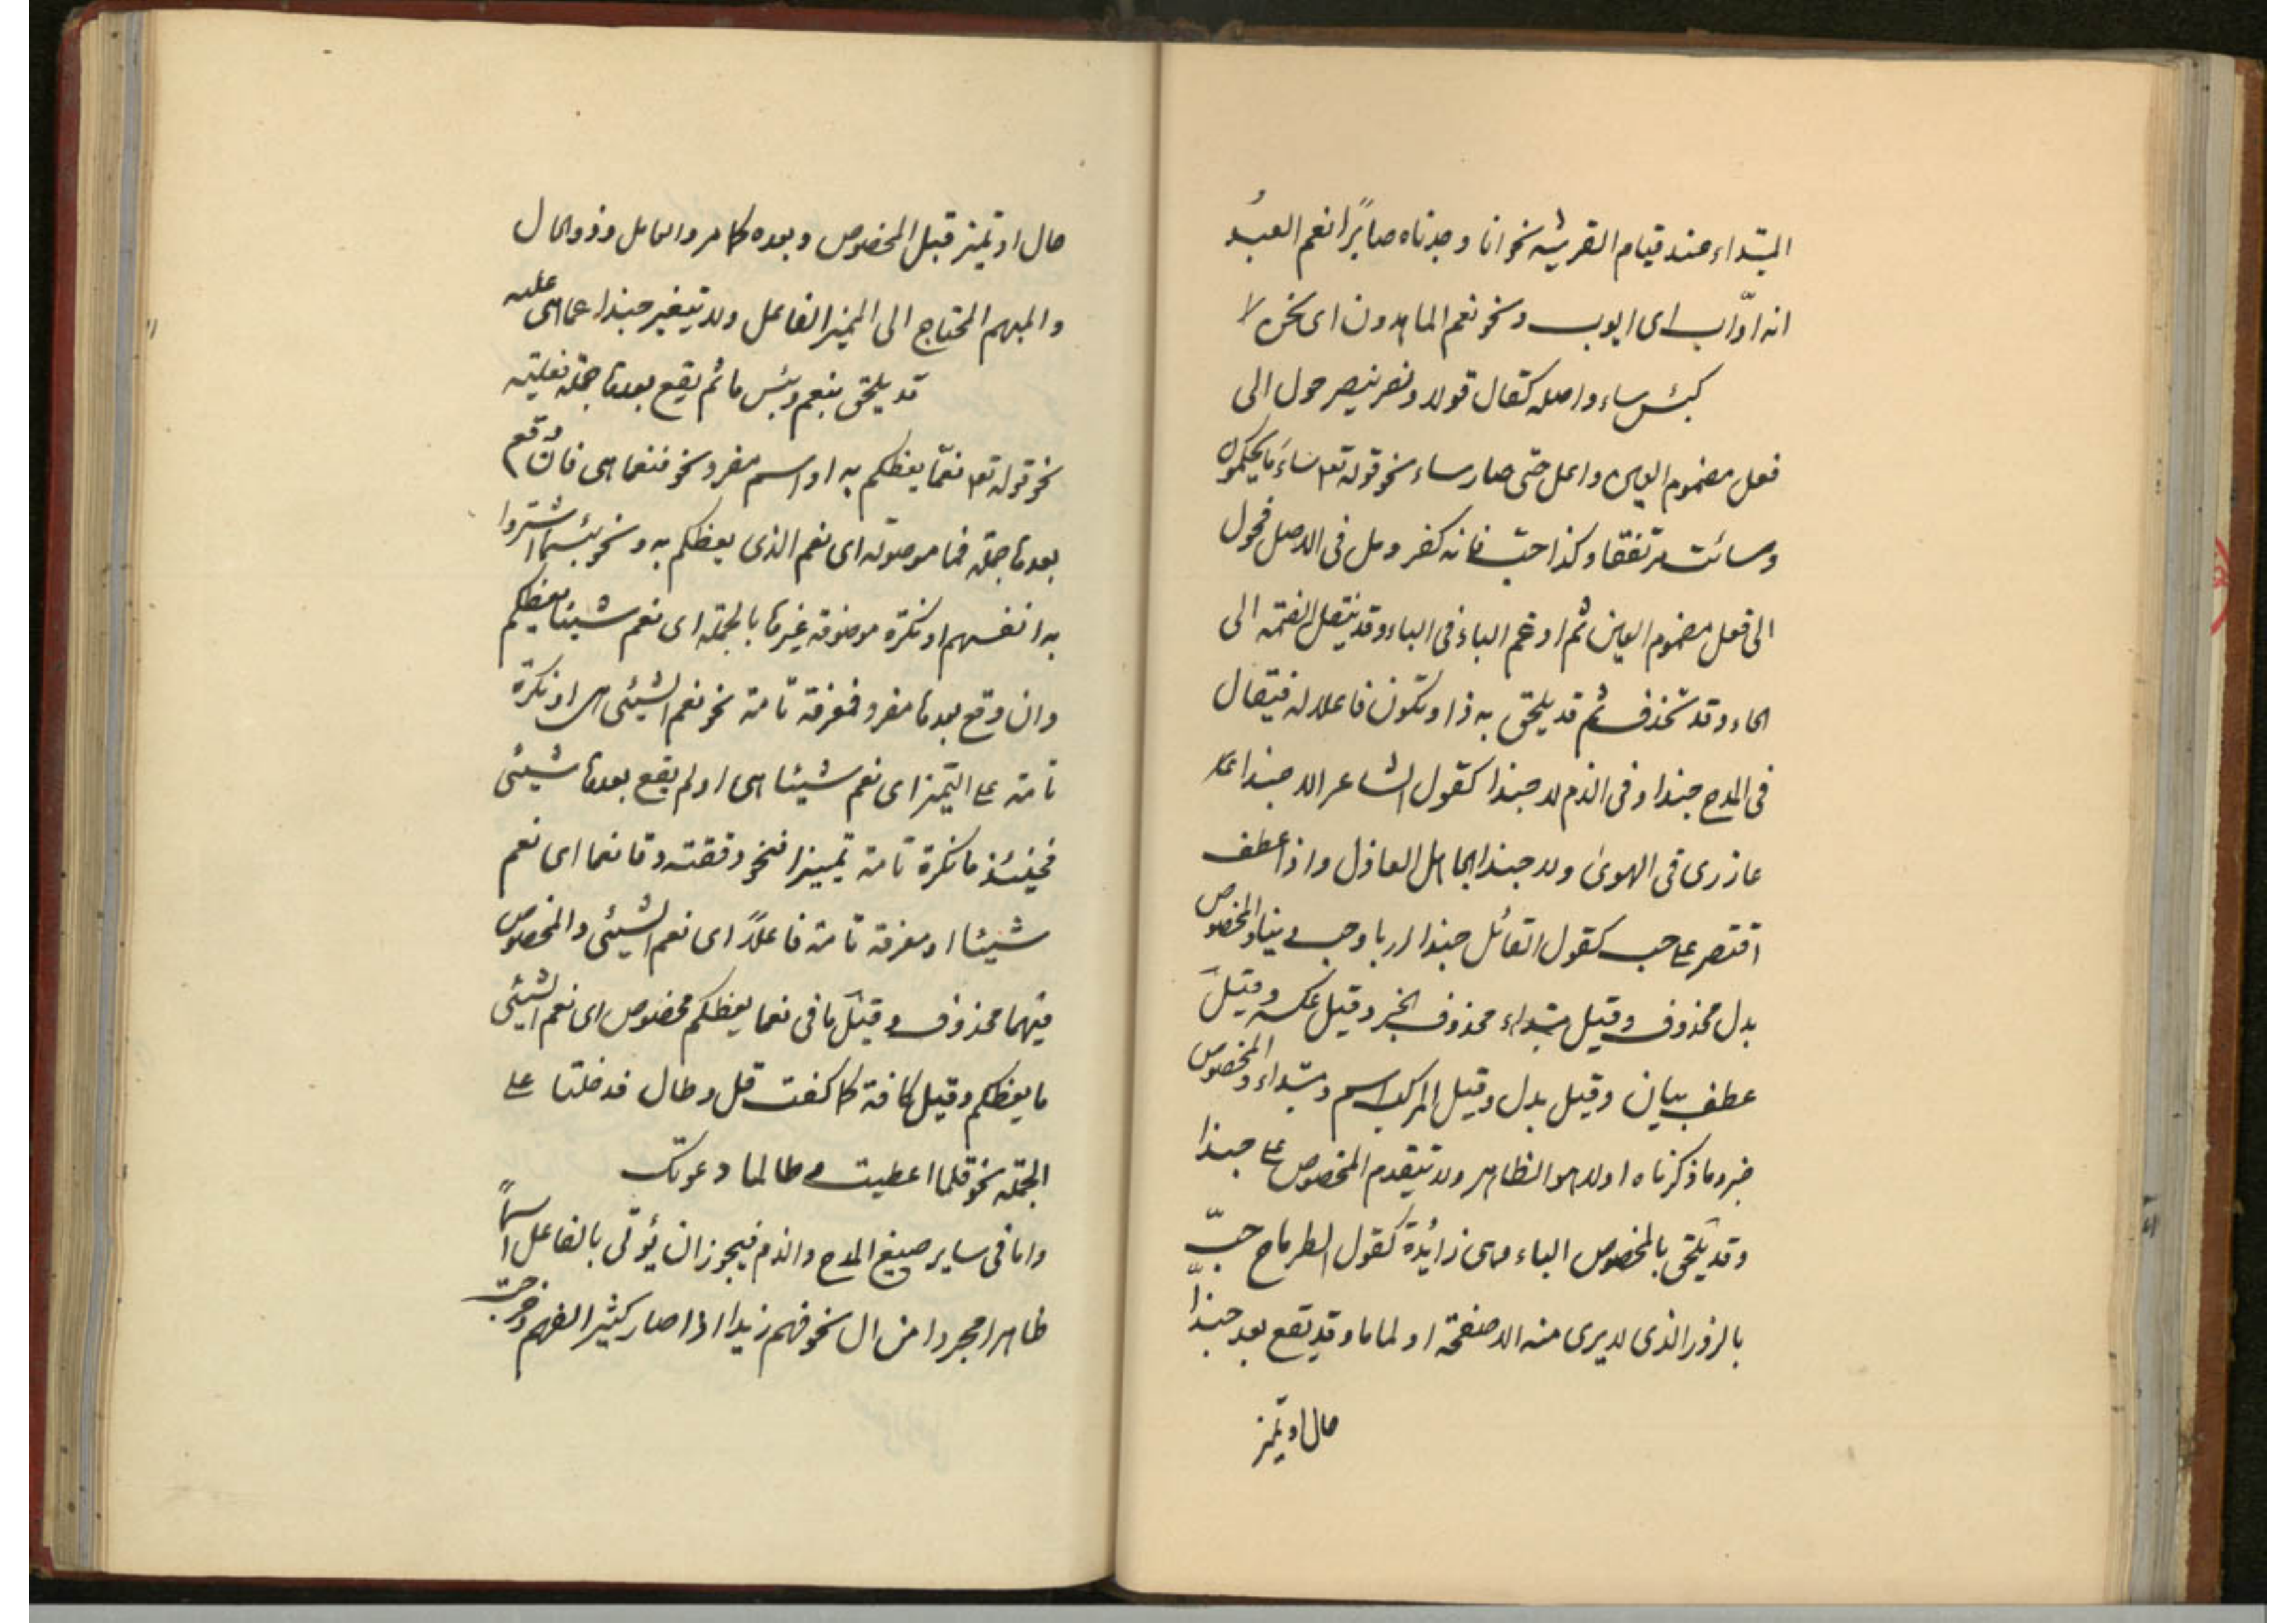 المبتداء عند قيام القرينه نحو انا وجدناه صابرًا نعم العبدُ
انه اوّاب اى ايوب ونحو نعم الماهدون اى نحن لا
كبئس ساء واصله كقال قولا ونصر ينصر حول الى
فعل مضموم العين واعل حتى صار ساء نحو قوله تع ساءَ ما يحكمون
وسائت مرتفقا وكذا حب فانه كفر ومل فى الاصل فحول
الى فعل مضموم العين ثم ادغم الباء فى الباء وقد ينتقل الضمة الى
الحاء وقد تحذف ثم قد يلحق به ذا وتكون فاعلا له فيقال
فى المدح حبذا وفى الذم لا حبذا كقول الشاعر الا حبذا
عازرى فى الهوى ولا حبذا الجاهل العاذل واذا عطف
اقتصر على حب كقول القائل حبذا ربا وحب دينا والمخصوص
بدل محذوف وقيل مبتداء محذوف الخبر وقيل عكسه وقيل
عطف بيان وقيل بدل وقيل المركب اسم ومبتداء والمخصوص
خبر وما ذكرناه اولا هو الظاهر ولا يتقدم المخصوص على حبذا
وقد يلحق بالمخصوص الباء وهى زائدة كقول الطرماح حبّ
بالزور الذى لا يرى منه الا صفحة او لماما وقد تقع بعد حبذا
حال او تميز
حال او تميز قبل المخصوص وبعده كما مر والعامل وذو الحال
والمبهم المحتاج الى المميز الفاعل ولا يتغير حبذا عما هى عليه
قد يلحق بنعم وبئس ما ثم يقع بعدها جملة فعلية
نحو قوله تع نعمّا يعظكم به او اسم مفرد نحو فنعما هى فان وقع
بعدها جملة فما موصولة اى نعم الذى يعظكم به ونحو بئسما اشتروا
به انفسهم او نكرة موصوفة غيرها بالجملة اى نعم شيئا يعظكم
وان وقع بعدها مفرد فمعرفة تامة نحو نعم الشيئى هى او نكرة
تامة على التميز اى نعم شيئا هى او لم يقع بعدها شيئى
فحينئذ ما نكرة تامة تمييزا فنحو دققته دقا نعما اى نعم
شيئا او معرفة تامة فاعلاً اى نعم الشيئى والمخصوص
فيهما محذوف وقيل ما فى نعما يعظكم مخصوص اى نعم الشيئى
ما يعظكم وقيل كافة كما كفت قل وطال فدخلتا على
الجملة نحو قلما اعطيت وطالما دعوتك
واما فى ساير صيغ المدح والذم فيجوز ان يؤتى بالفاعل اسماً
ظاهرا مجردا من ال نحو فهم زيدا اذا صار كثير الفهم وخرجت